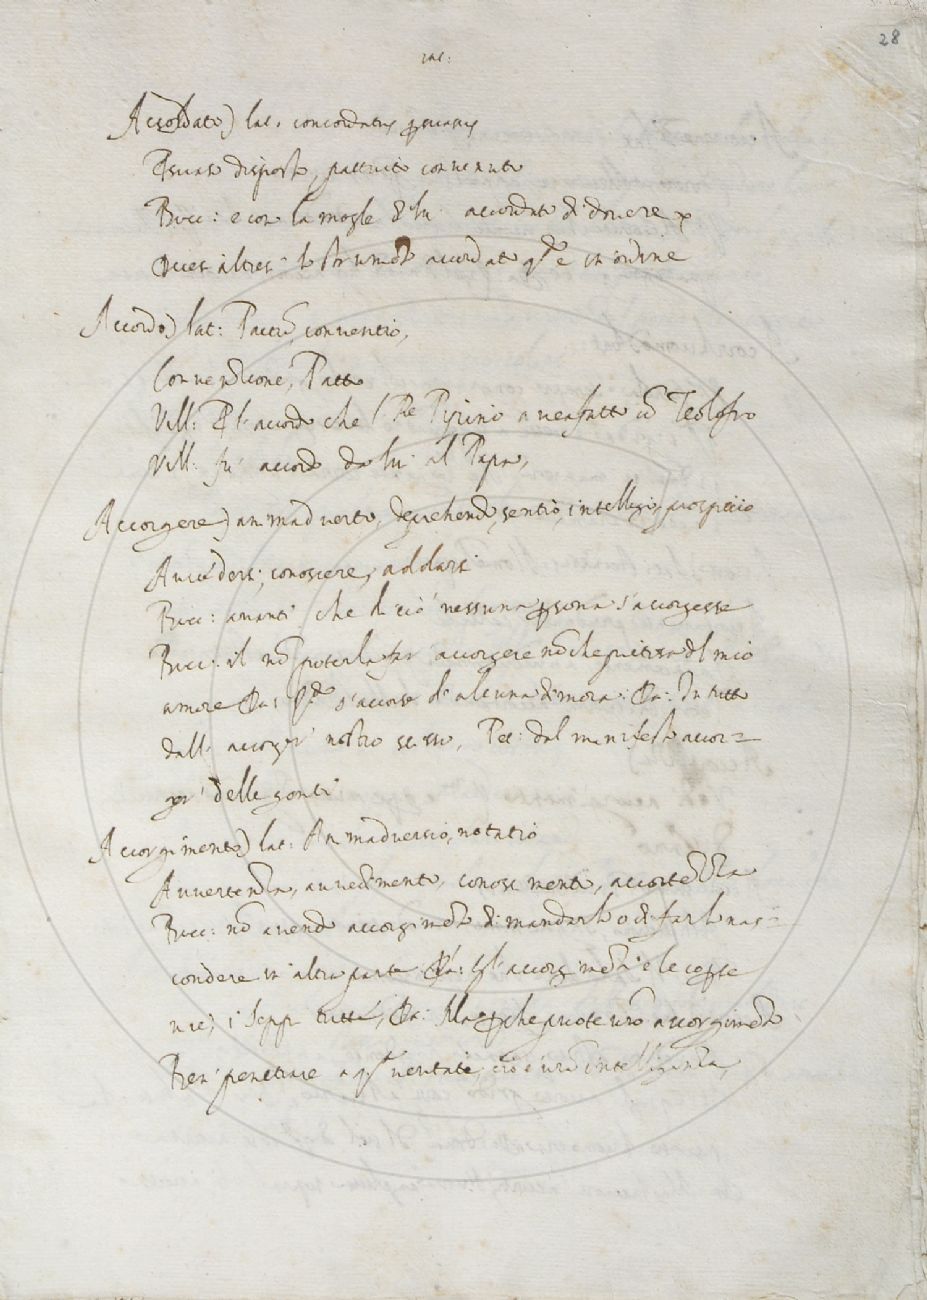 28
Accordato) lat. concordatus
disposto, pattuito convenuto
Bocc: e con la mogle di lui accordato di dovere
altresì lo strumẽto accordato e in ordine
Accordo) lat: Pactũ, conventio,
Convenzione, Patto
Vill: l'accordo che l Re avea fatto cõ
Vill. fu accordo da lui al Papa,
Accorgere) animadverto, deprehendo, sentio, intelligo, prospicio
Avvedersi, conoscere, addarsi
Bocc: avanti che di ciò nessuna persona s'accorgesse
Bocc: il nõ poterla far accorgere nõ che del mio
amore Da: s'accorse d'alcuna dimora: Da: In tutto
dall' accorger nostro scisso, Pet: dal manifesto accor=
ger delle genti
Accorgimento) lat: Animadversio, notatio
Avvertenza, avvedimento, conoscimento, accortezza
Bocc: nõ avendo accorgimẽto di mandarlo o di farlo nas=
condere in altra parte Da: gl'accorgimẽti e le coperte
vie, i seppi tutte, Da: Ma perche puote vrõ accorgimẽto
Ben penetrare a verità, ciò è vrã intelligenza,